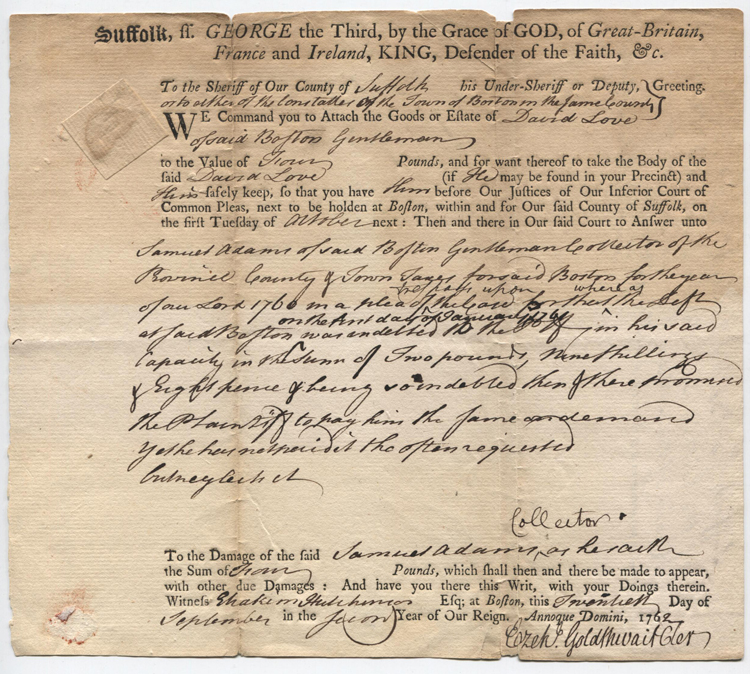 Suffolk, ss. GEORGE the Third, by the Grace of GOD, of Great-Britain,
France and Ireland, KING, Defender of the Faith, &c.
To the Sheriff of Our County of Suffolk his Under-Sheriff or Deputy, Greeting.
or to either of the Constables of the Town of Boston in the same County
WE Command you to Attach the Goods or Estate of David Love
of said Boston Gentleman
to the Value of Four Pounds, and for want thereof to take the Body of the
said David Love (if He may be found in your Precinct) and
Him safely keep, so that you have Him before Our Justices of Our Inferior Court of
Common Pleas, next to be holden at Boston, within and for Our said County of Suffolk, on
the first Tuesday of October next: Then and there in Our said Court to Answer unto
Samuel Adams of said Boston Gentleman Collector of the
Province County & Town Taxes for said Boston for the year
trespass upon whereas
of our Lord 1760 in a plea of the case for that the Deft
on the first day of January 1761
at said Boston was indebted to the in his said
Capacity in the Sum of Two pounds, Nine Shillings
& Eight pence & being so indebted then & there promised
the Plaintiff to pay him the same on demand
Yet he has not paid it tho often requested
but neglects it
Collector
To the Damage of the said Samuel Adams, as he saith
the Sum of Four Pounds, which shall then and there be made to appear,
with other due Damages: And have you there this Writ, with your Doings therein.
Witness Eliakim Hutchinson Esq; at Boston, this Twentieth Day of
September in the Second Year of Our Reign. Annoque Domini, 1762
Ezek. Goldthwait Cler